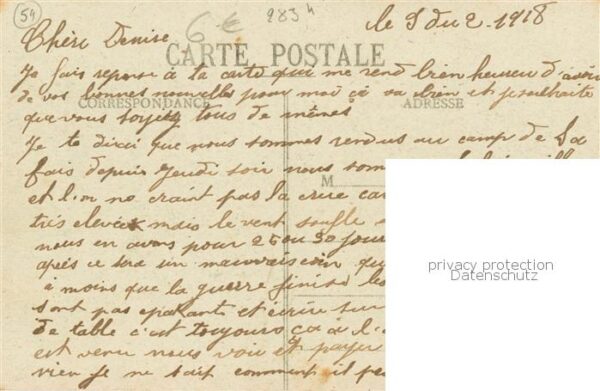 54
6 €
283 h
le 9 du 2. 1918
Chère Denise
CARTE POSTALE
Je fais reponse à la carte qui me rend bien heureu d'avoir
de vos bonnes nouvelles pour moi ça va bien et je souhaite
CORRESPONDANCE
ADRESSE
que vous soyez tous de même
Je te dirai que nous sommes rendus au camp de La
fais depuis Jeudi soir nous som
M
et l'on ne craint pas la crue car
très elevée mais le vent souffle
nous en avons pour 25 ou 30 jour
privacy protection
Datenschutz
après ce sera un mauvais coin qu
à moins que la guerre finise les
sont pas epatants et écrire sur
de table c'est toujours ça a l'
est venu nous voir et payer
rien je ne sait comment il pe